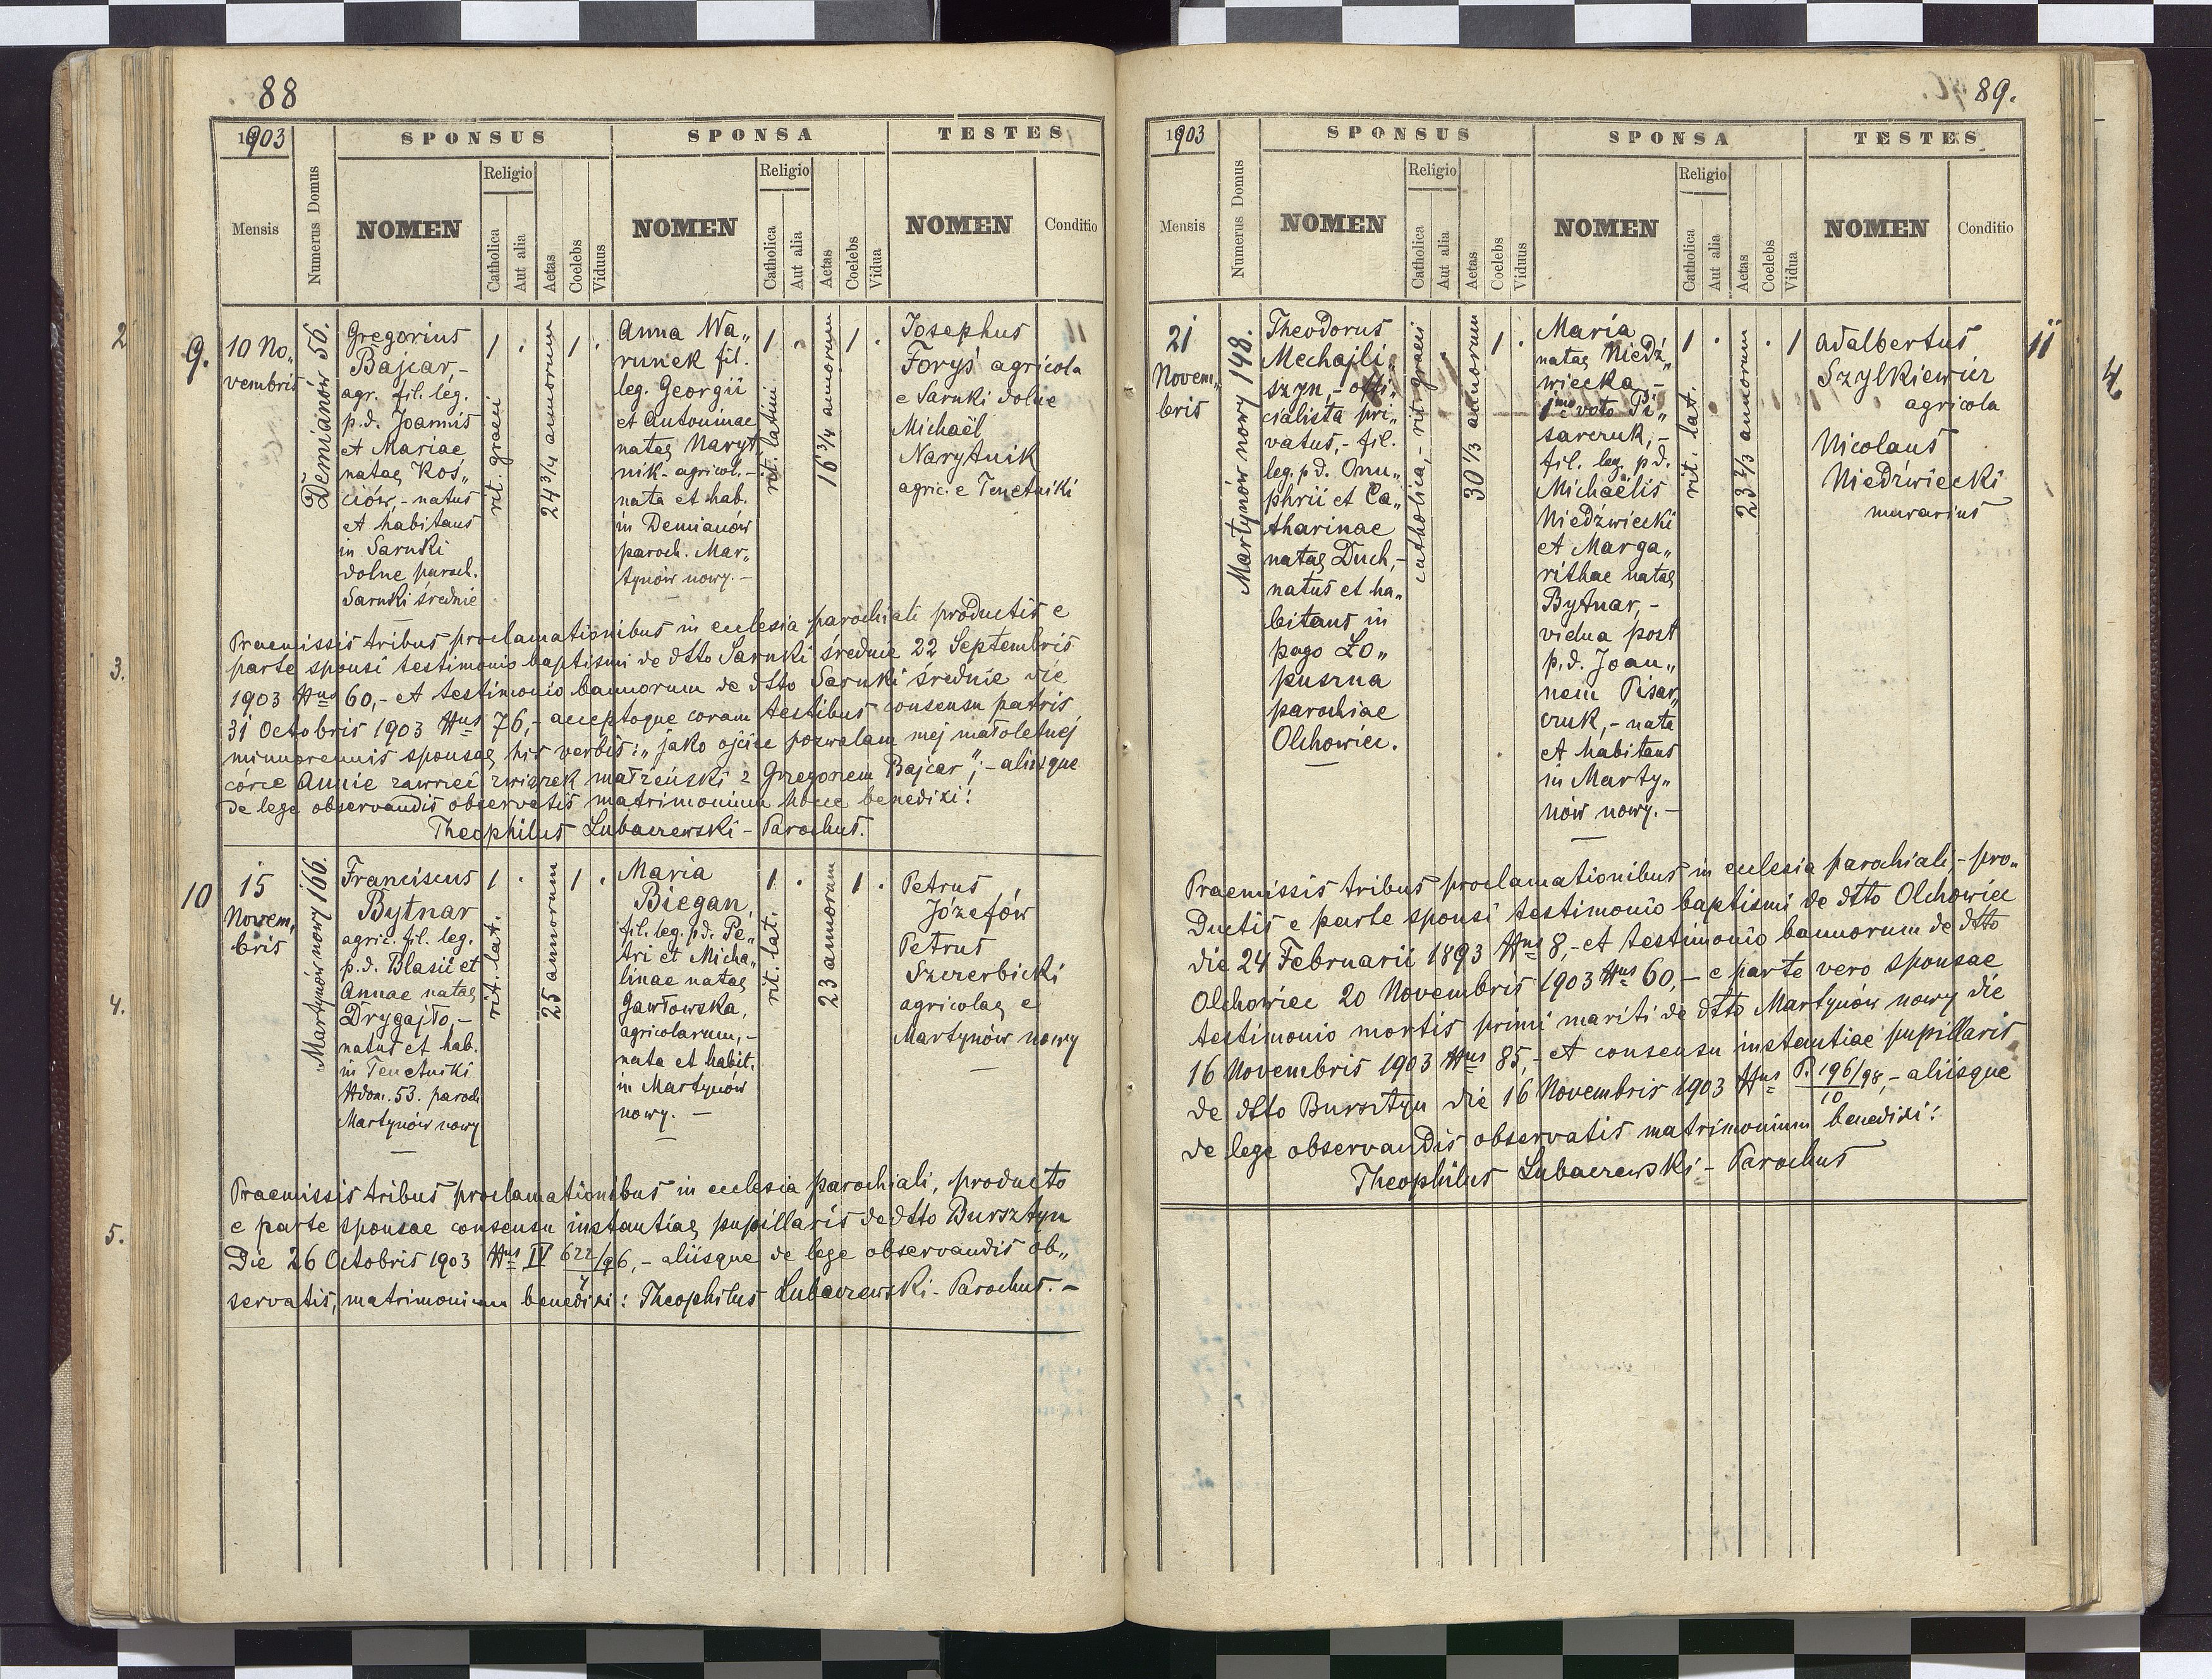 88
1903
SPONSUS
SPONSA
TESTES
Mensis
Numerus Domus
NOMEN
Religio
Catholica
Aut alia
Aetas
Coelebs
Viduus
NOMEN
Religio
Catholica
Aut alia
Aetas
Coelebs
Vidua
NOMEN
Conditio
2
9.
10 No„
vembris
Demianów 56.
Gregorius
Bajcar,-
agr. fil. leg.
p.d. Joannis
et Mariae
natae Koś„
ciów,- natus
et habitans
in Sarnki
dolne paroch.
Sarnki średnie
1
.
rit. graeci
24 3/4 annorum
1
.
Anna Wa„
runek fil.
leg. Georgii
et Antoninae
natae Naryt„
nik- agricol.-
nata et hab.
in Demianów
paroch. Mar„
tynów nowy.-
1
.
rit. latini
16 3/4 annorum
1
.
Josephus
Foryś agricola
e Sarnki dolne
Michaël
Narytnik
agric. e Tenetniki
3.
Praemissis tribus proclamationibus in eclesia parochiali productis e
parte sponsi testimonio baptismi de dtto Sarnki średnie 22 Septembris
1903 Nus 60,- et testimonio bannorum de dtto Sarnki średnie die
31 Octobris 1903 Nus 76,- acceptoque coram testibus consensu patris
minnorennis sponsae his verbis: „jako ojciec pozwalam mej małoletniej
córce Annie zawrzeć związek małżeński z Gregorem Bajcar";- aliisque
de lege observandis observatis matrimonium hocce benedixi!
Theophilus Lubaczewski - Parochus.
10
15
Novem„
bris
Martynów nowy 166.
Franciscus
Bytnar
agric. fil. leg.
p.d. Blasii et
Annae natae
Drygajło,-
natus et hab.
in Tenetniki
Ndom. 53. paroch
Martynów nowy
1
.
rit. lat.
25 annorum
1
.
Maria
Biegan,
fil. leg. pd. Pe„
tri et Micha„
linae natae
Gawłowska,
agricolarum,-
nata et habit.
in Martynów
nowy. -
1
.
rit. lat.
23 annorum
1
.
Petrus
Józefów
Petrus
Szczerbicki
agricolae e
Martynów nowy
4.
5.
Praemissis tribus proclamationibus in eclesia parochiali, producto
e parte sponsae consensu instantiae pupillaris de dtto Bursztyn
Die 26 Octobris 1903 Nus IV 622/96,- aliisque de lege observandis ob„
servatis, matrimonium benedixi: Theophilus Lubaczewski - Parochus. -
89.
1903
SPONSUS
SPONSA
TESTES
Mensis
Numerus Domus
NOMEN
Religio
Catholica
Aut alia
Aetas
Coelebs
Viduus
NOMEN
Religio
Catholica
Aut alia
Aetas
Coelebs
Vidua
NOMEN
Conditio
21
Novem„
bris
Martynów nowy 148.
Theodorus
Mechajli„
szyn,- offi„
cialista pri„
vatus,- fil.
leg. pd. Onu„
phrii et Ca„
tharinae
natae Duch,-
natus et ha„
bitans in
pago Ło„
puszna
parochiae
Olchowiec.
catholica,- rit. graeci
30 1/3 annorum
1
.
Maria
natae Niedź„
wiecka,-
1mo voto Pi„
sarczuk,-
fil. leg. pd.
Michaëlis
Niedźwiecki
et Marga„
rithae natae
Bytnar,-
vidua post
p.d. Joan„
nem Pisar„
czuk,- nata
et habitans
in Marty„
nów nowy.-
1
.
rit. lat.
23 2/3 annorum
.
1
Adalbertus
Szylkiewicz
agricola
Nicolaus
Niedźwiecki
murarius
11
4
Praemissis tribus proclamationibus in eclesia parochiali,- pro„
ductis e parte sponsi testimonio baptismi de dtto Olchowiec
die 24 Februarii 1893 Nus 8,- et testimonio bannorum de dtto
Olchowiec 20 Novembris 1903 Nus 60,- e parte vero sponsae
testimonio mortis primi mariti de dtto Martynów nowy die
16 Novembris 1903 Nus 85,- et consensu instantiae pupillaris
de dtto Bursztyn die 16 Novembris 1903 Nus P. 196/98,- aliisque
10
de lege observandis observatis matrimonium benedixi!
Theophilus Lubaczewski - Parochus